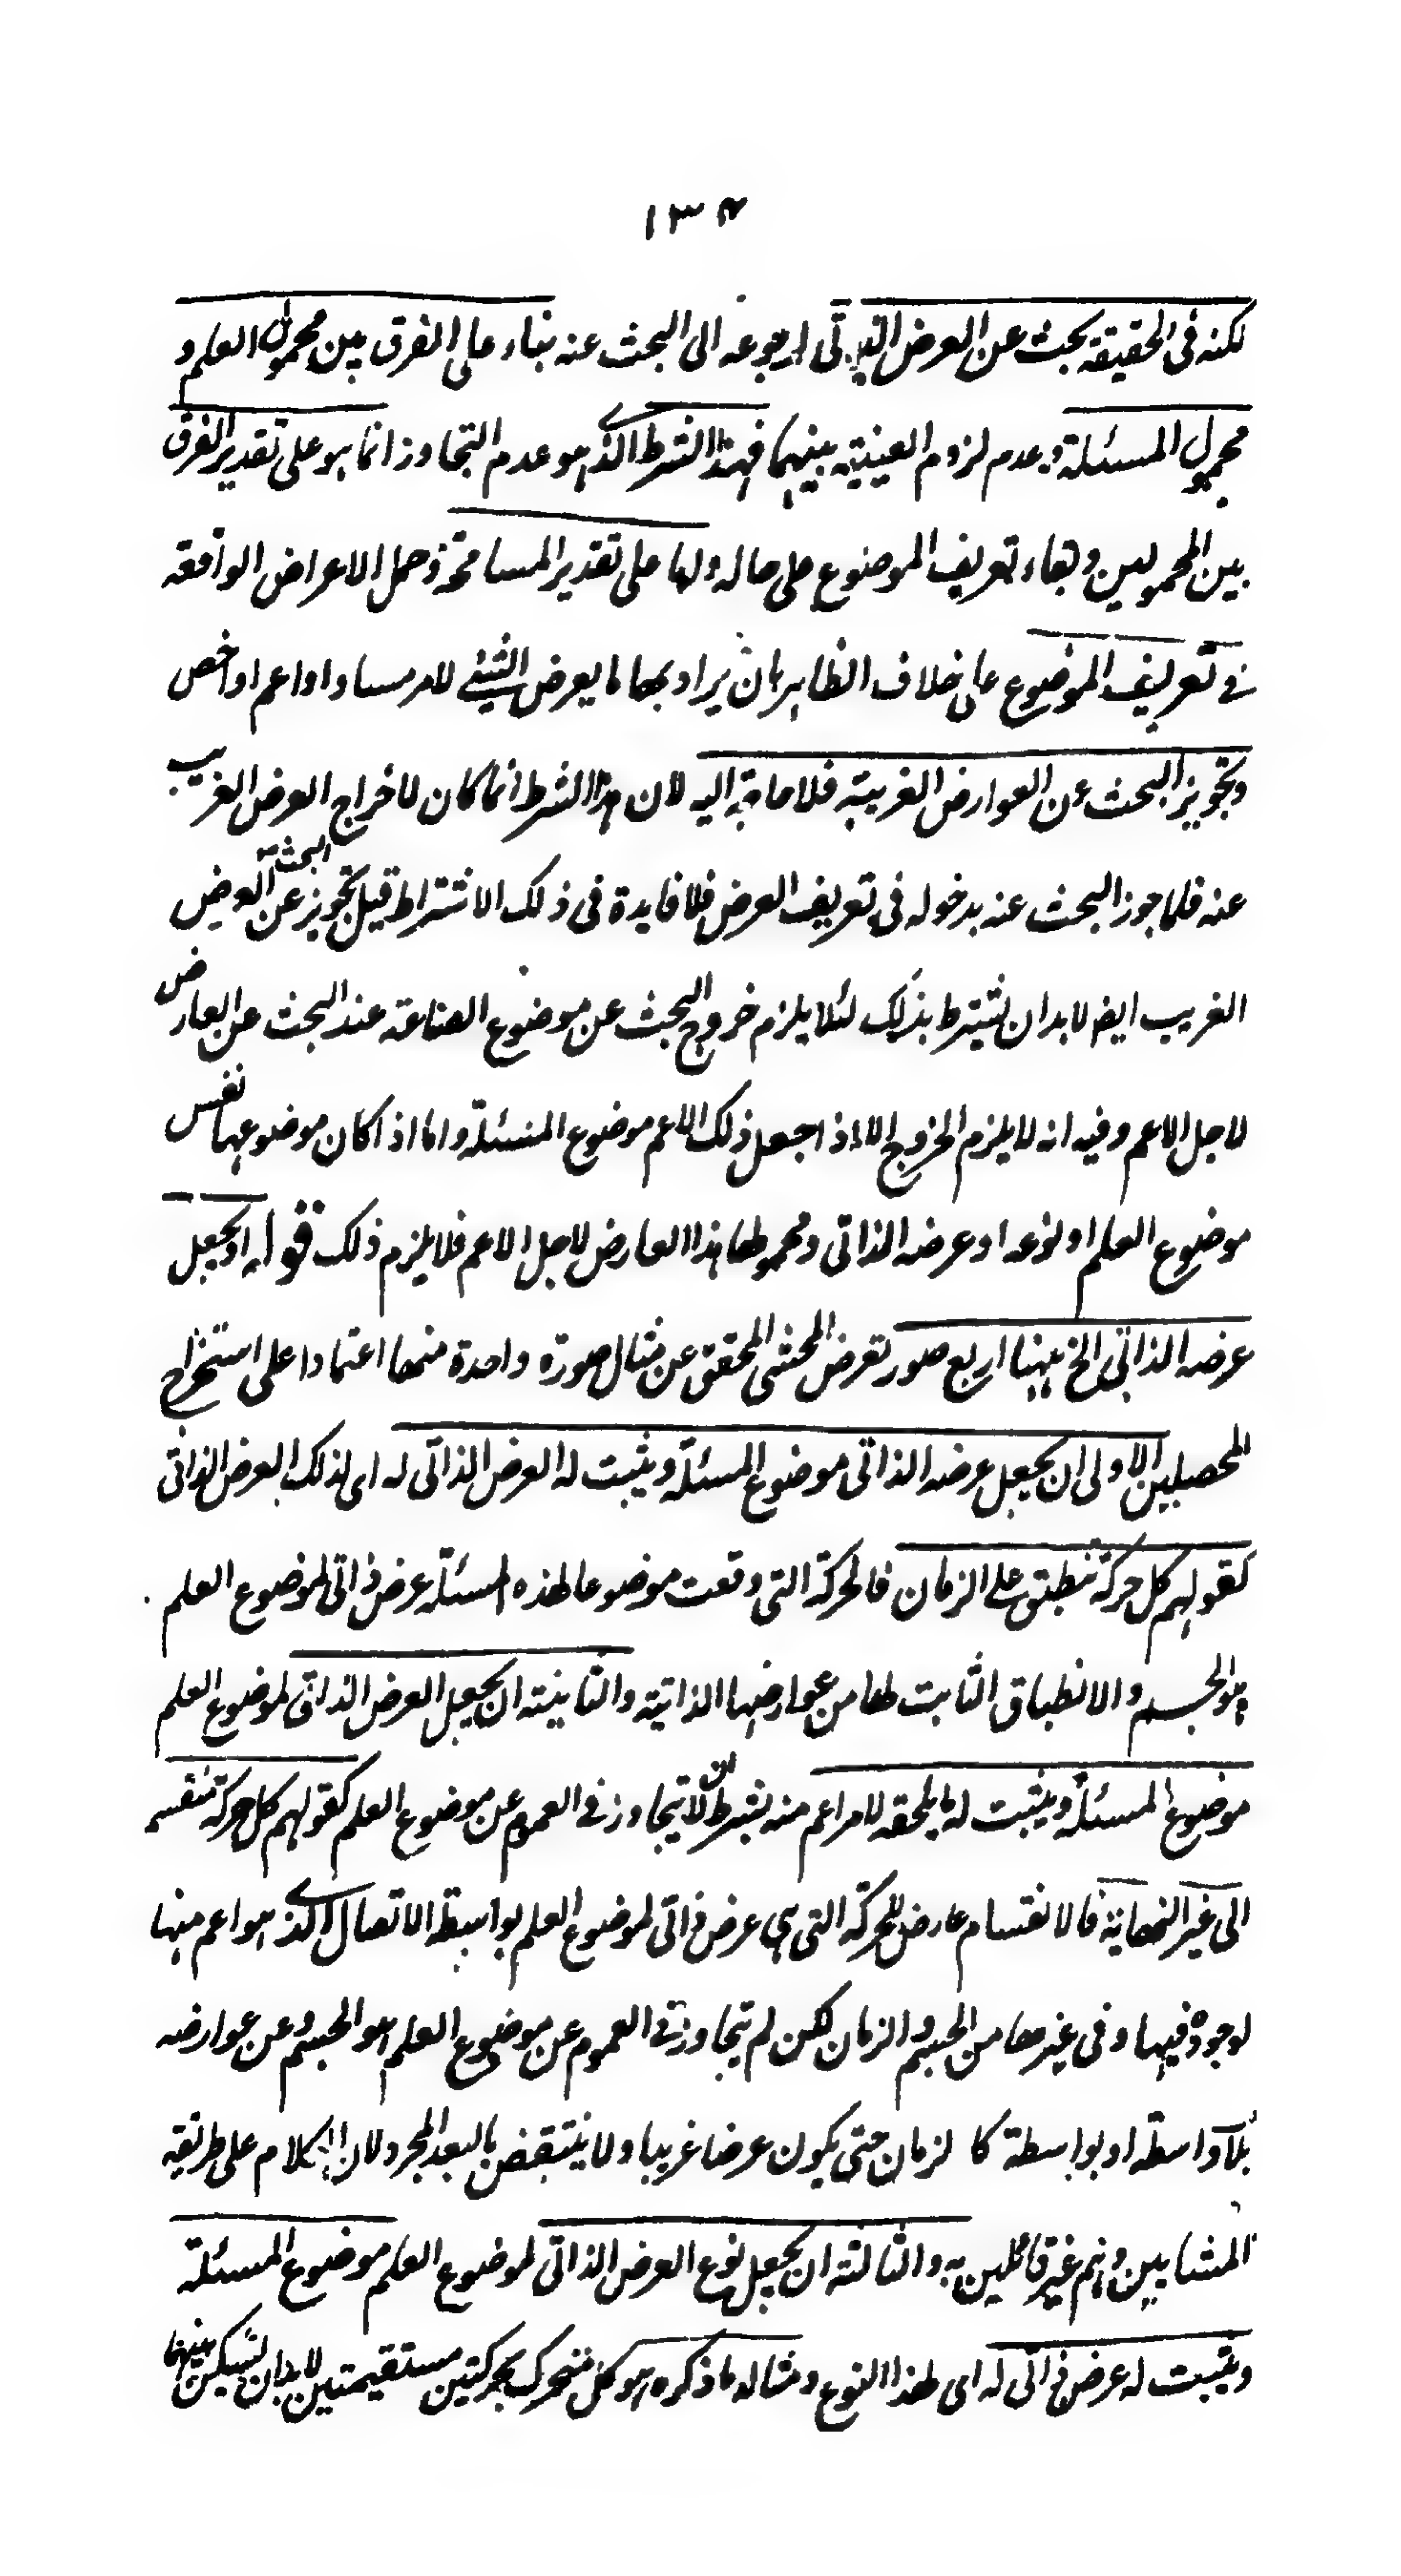 ١٣٤
لكنه فى الحقيقة بحث عن العرض الذاتى لرجوعه الى البحث عنه بناء على الفرق بين محمول العلم و
محمول المسئلة وعدم لزوم العينية بينهما فهذا الشرط الذى هو عدم التجاوز انما هو على تقدير الفرق
بين المحمولين وبقاء تعريف الموضوع على حاله واما على تقدير المسامحة وحمل الاعراض الواقعة
فى تعريف الموضوع على خلاف الظاهر بان يراد بها ما يعرض الشئ لامر مساو او اعم او اخص
وتجويز البحث عن العوارض الغريبة فلا حاجة اليه لان هذا الشرط انما كان لاخراج العرض الغريب
عنه فلما جوز البحث عنه بدخوله فى تعريف العرض فلا فايدة فى ذلك الاشتراط قيل تجويز البحث عن العرض
الغريب ايض لا بد ان يشترط بذلك لئلا يلزم خروج البحث عن موضوع الصناعة عند البحث عن العارض
لاجل الاعم وفيه انه لا يلزم الخروج الا اذا جعل ذلك الاعم موضوع المسئلة واما اذا كان موضوعها نفس
موضوع العلم او نوعه او عرضه الذاتى ومحمولها هذا العارض لاجل الاعم فلا يلزم ذلك قوله او يجعل
عرضه الذاتى الخ ههنا اربع صور تعرض المحشى المحقق عن مثال صورة واحدة منها اعتمادا على استخراج
المحصلين الاولى ان يجعل عرضه الذاتى موضوع المسئلة ويثبت له العرض الذاتى له اى لذلك العرض الذاتى
كقولهم كل حركة تنطبق على الزمان فالحركة التى وقعت موضوعا لهذه المسئلة عرض ذاتى لموضوع العلم
هو الجسم والانطباق الثابت لها من عوارضها الذاتية والثانية ان يجعل العرض الذاتى لموضوع العلم
موضوع المسئلة ويثبت له ما يلحقه لامر اعم منه بشرط ان لا يتجاوز فى العموم عن موضوع العلم كقولهم كل حركة منقسمة
الى غير النهاية فالانقسام عارض للحركة التى هى عرض ذاتى لموضوع العلم بواسطة الاتصال الذى هو اعم منها
لوجوده فيها وفى غيرها من الجسم والزمان لكن لم يتجاوز فى العموم عن موضوع العلم هو الجسم وعن عوارضه
بلا واسطة او بواسطة كالزمان حتى يكون عرضا غريبا ولا ينتقض بالبعد المجرد لان الكلام على طريقة
المشايين وهم غير قائلين به والثالثة ان يجعل نوع العرض الذاتى لموضوع العلم موضوع المسئلة
ويثبت له عرض ذاتى له اى لهذا النوع ومثاله ما ذكره هو كل متحرك بحركتين مستقيمتين لا بد ان يسكن بينهما